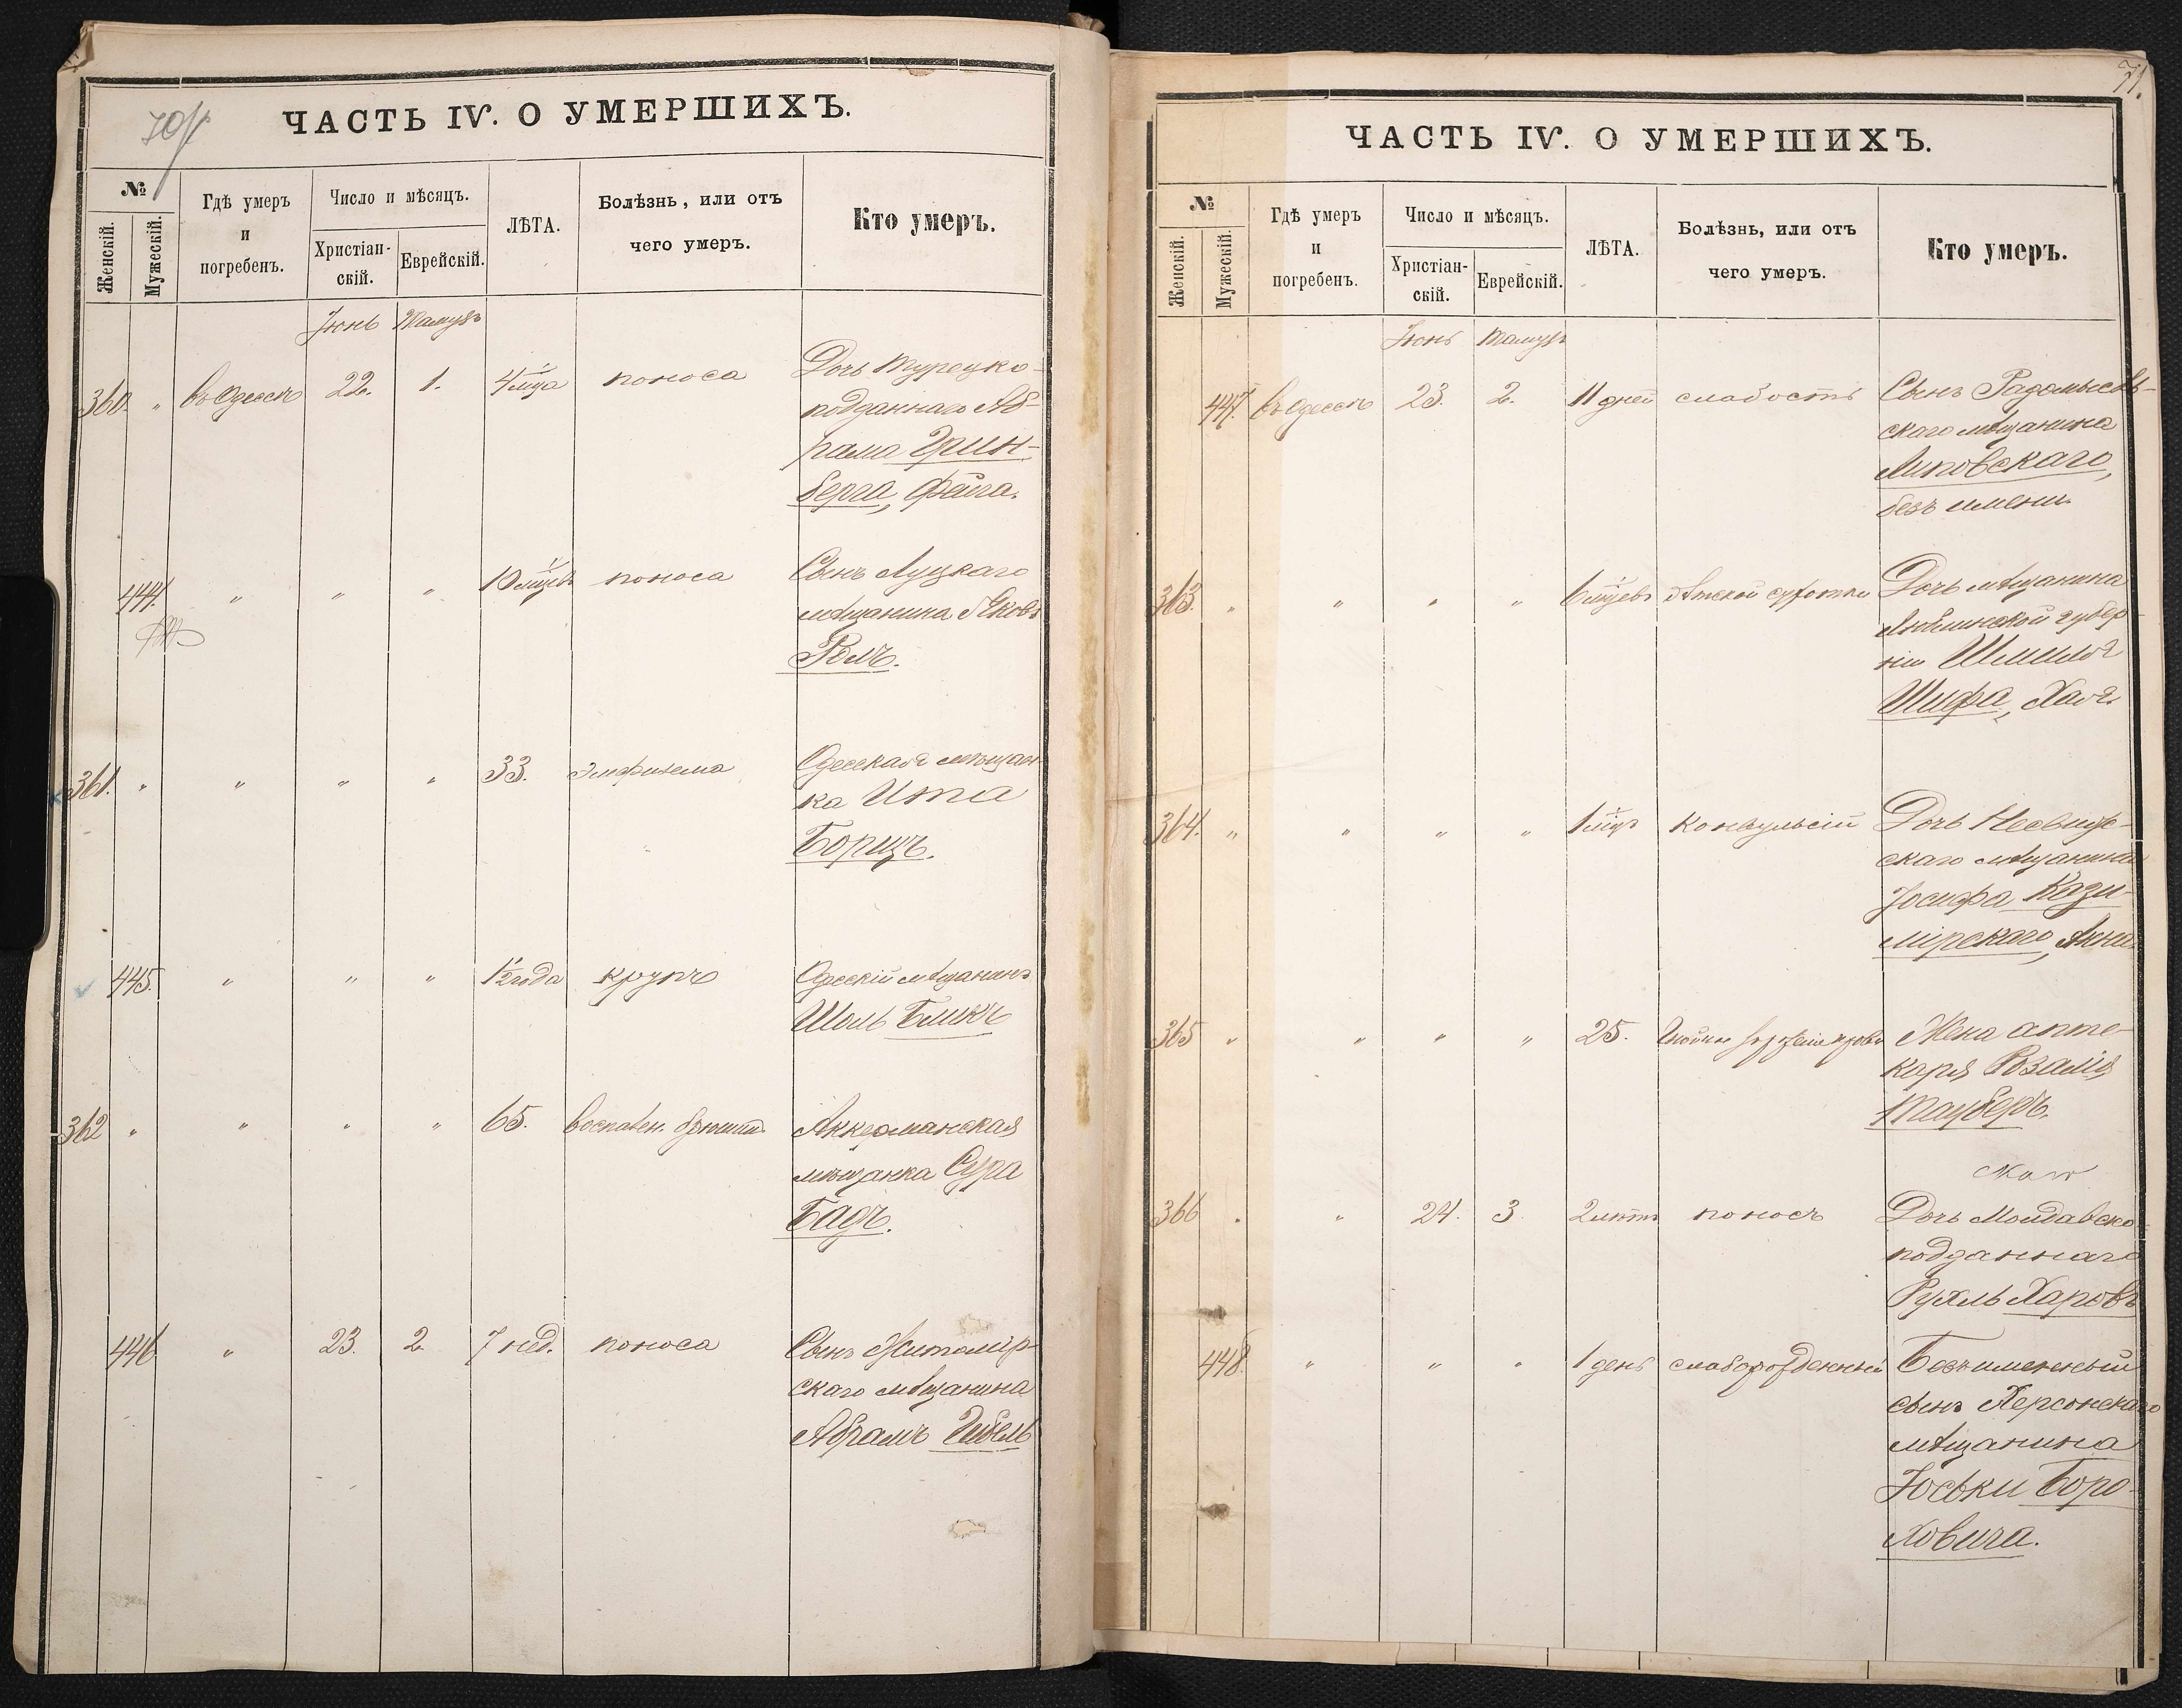 70/
ЧАСТЬ IV. О УМЕРШИХЪ.
№
Женскій.
Мужескій.
Гдѣ умеръ
и
погребенъ.
Число и мѣсяцъ.
Христіан-
скій.
Еврейскій.
ЛѢТА.
Болѣзнь, или отъ
чего умеръ.
Кто умеръ.
Іюнь Тамузъ
360. " въ Одессѣ 22. 1. 4 м-ца поноса Дочь Турецко-
подданнаго Аб-
рама Грин-
берга, Фейга.
444. " " " 10 м-цевъ поноса Сынъ Луцкаго
мѣщанина Яковъ
Ройтъ.
361. " " " " 33. Эмфизема Одесская мѣщан-
ка Ита
Борщъ.
445. " " " 1½ года крупъ Одесскій мѣщанинъ
Шоль Бликъ
362 " " " " 65. воспален. брюшин. Аккерманская
мѣщанка Сура
Бадъ.
446 " 23. 2. 7 нед. поноса Сынъ Житомір-
скаго мѣщанина
Абрамъ Гибель
71.
ЧАСТЬ IV. О УМЕРШИХЪ.
№
Женскій.
Мужескій.
Гдѣ умеръ
и
погребенъ.
Число и мѣсяцъ.
Христіан-
скій.
Еврейскій.
ЛѢТА.
Болѣзнь, или отъ
чего умеръ.
Кто умеръ.
Іюнь Тамузъ
447. въ Одессѣ 23. 2. 11 дней слабость Сынъ Радомысль-
скаго мѣщанина
Липовскаго,
безъ имени.
363. " " " " 6 м-цевъ дѣтской сухотки Дочь мѣщанина
Люблинской губер-
ніи Шмиля
Шифа, Хая.
364. " " " " 1 м-цъ конвульсій Дочь Несвиж-
скаго мѣщанина
Іосифа Кази-
мірскаго, Анна.
365 " " " " 25. Гнойное зараженіе крови Жена апте-
каря Розалія
Тауберъ.
366 " " 24. 3 2 лѣтъ поносъ Дочь Молдавско-
подданнаго
Рухль Харовъ
448. " " " 1 день слаборожденный Безъименный
сынъ Херсонскаго
мѣщанина
Іоськи Боро-
ховича.